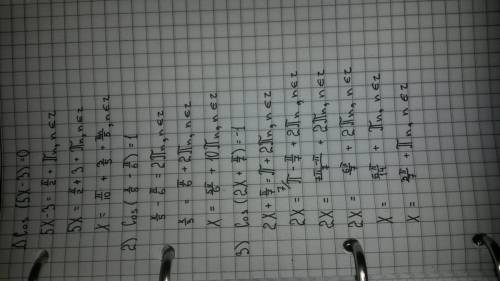 1) Cos (5x-3)=0
5x-3 = π/2 + πn, n∈z
5x = π/2 + 3 + πn, n∈z
x = π/10 + 3/5 + πn/5, n∈z
2) Cos (x/5 - π/6) = 1
x/5 - π/6 = 2πn, n∈z
x/5 = π/6 + 2πn, n∈z
x = 5π/6 + 10πn, n∈z
3) Cos (2x + π/7) = -1
2x + π/7 = π + 2πn, n∈z
2x = π - π/7 + 2πn, n∈z
2x = 7π-π/7 + 2πn, n∈z
2x = 6π/7 + 2πn, n∈z
x = 6π/14 + πn, n∈z
x = 3π/7 + πn, n∈z